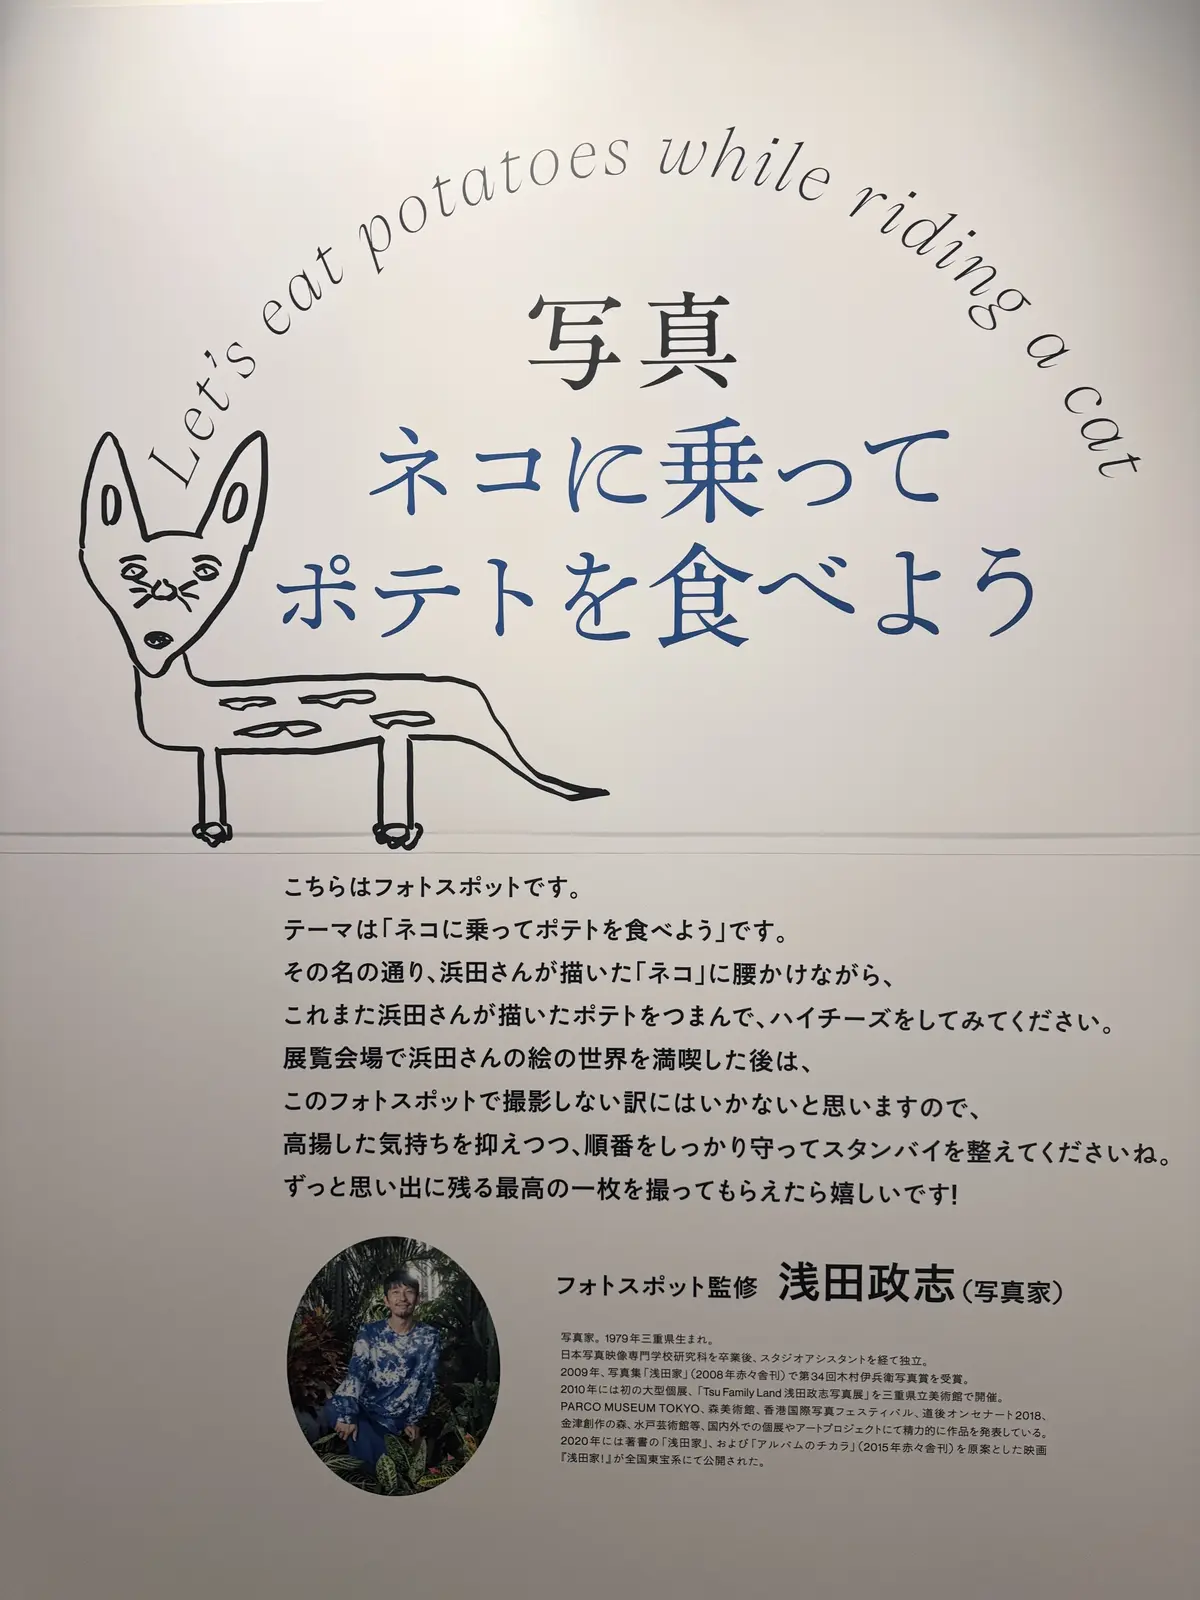 Let's eat potatoes while riding a cat
写真
ネコに乗って
ポテトを食べよう
こちらはフォトスポットです。
テーマは「ネコに乗ってポテトを食べよう」です。
その名の通り、浜田さんが描いた「ネコ」に腰かけながら、
これまた浜田さんが描いたポテトをつまんで、ハイチーズをしてみてください。
展覧会場で浜田さんの絵の世界を満喫した後は、
このフォトスポットで撮影しない訳にはいかないと思いますので、
高揚した気持ちを抑えつつ、順番をしっかり守ってスタンバイを整えてくださいね。
ずっと思い出に残る最高の一枚を撮ってもらえたら嬉しいです!
フォトスポット監修 浅田政志（写真家）
写真家。1979年三重県生まれ。
日本写真映像専門学校研究科を卒業後、スタジオアシスタントを経て独立。
2009年、写真集「浅田家」（2008年赤々舎刊）で第34回木村伊兵衛写真賞を受賞。
2010年には初の大型個展、「Tsu Family Land 浅田政志写真展」を三重県立美術館で開催。
PARCO MUSEUM TOKYO、森美術館、香港国際写真フェスティバル、道後オンセナート2018、
金津創作の森、水戸芸術館等、国内外での個展やアートプロジェクトにて精力的に作品を発表している。
2020年には著書の「浅田家」、および「アルバムのチカラ」（2015年赤々舎刊）を原案とした映画
『浅田家!』が全国東宝系にて公開された。